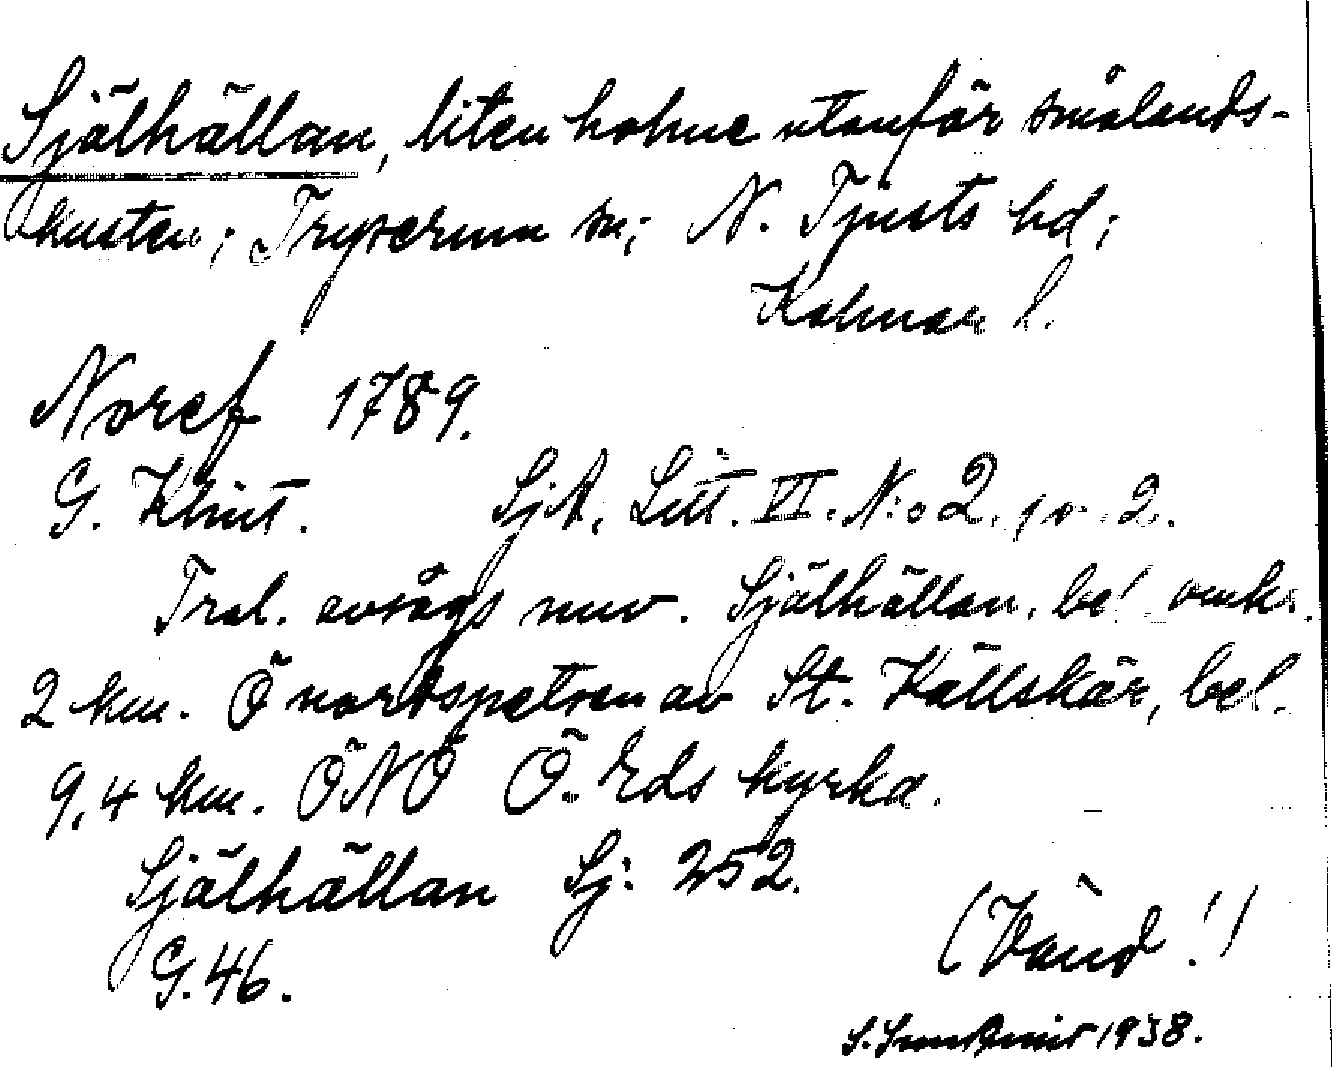 Själhällan, liten holme utanför smålands-
kusten; Tryserum sn; N. Tjusts hd;
Kalmar l.
Norcf 1789.
G. Klint. SjA, Litt. VI. N:o 2. p. 2.
Trol. avsågs nuv. Själhällan, bel. omkr.
2 km. Ö nordspetsen av St. Källskär, bel.
9,4 km. ÖNÖ Ö. Eds kyrka.
Själhällan Sj: 252.
G. 46.
(Vänd!)
1938.